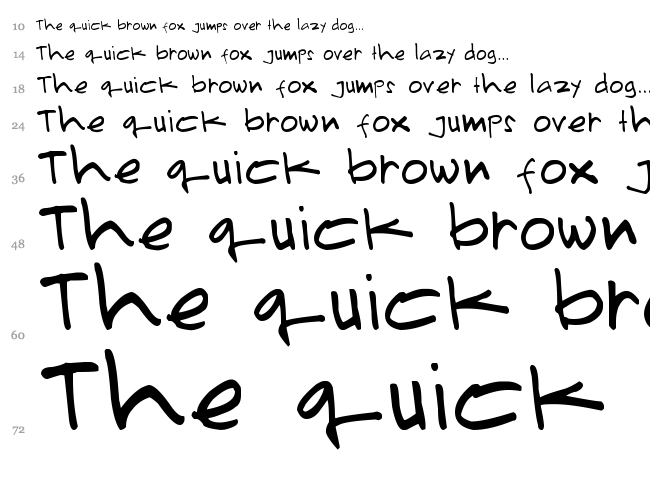 10 The quick brown fox jumps over the lazy dog...
14 The quick brown fox jumps over the lazy dog...
18 The quick brown fox jumps over the lazy dog...
24 The quick brown fox jumps over th
36 The quick brown fox j
48 The quick brown
60 The quick bro
72 The quick